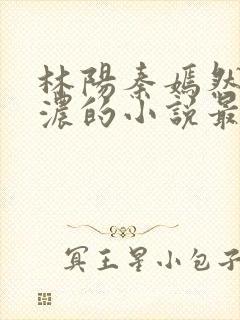 林陽秦嫣然
濃的小説最
冥王星小包子